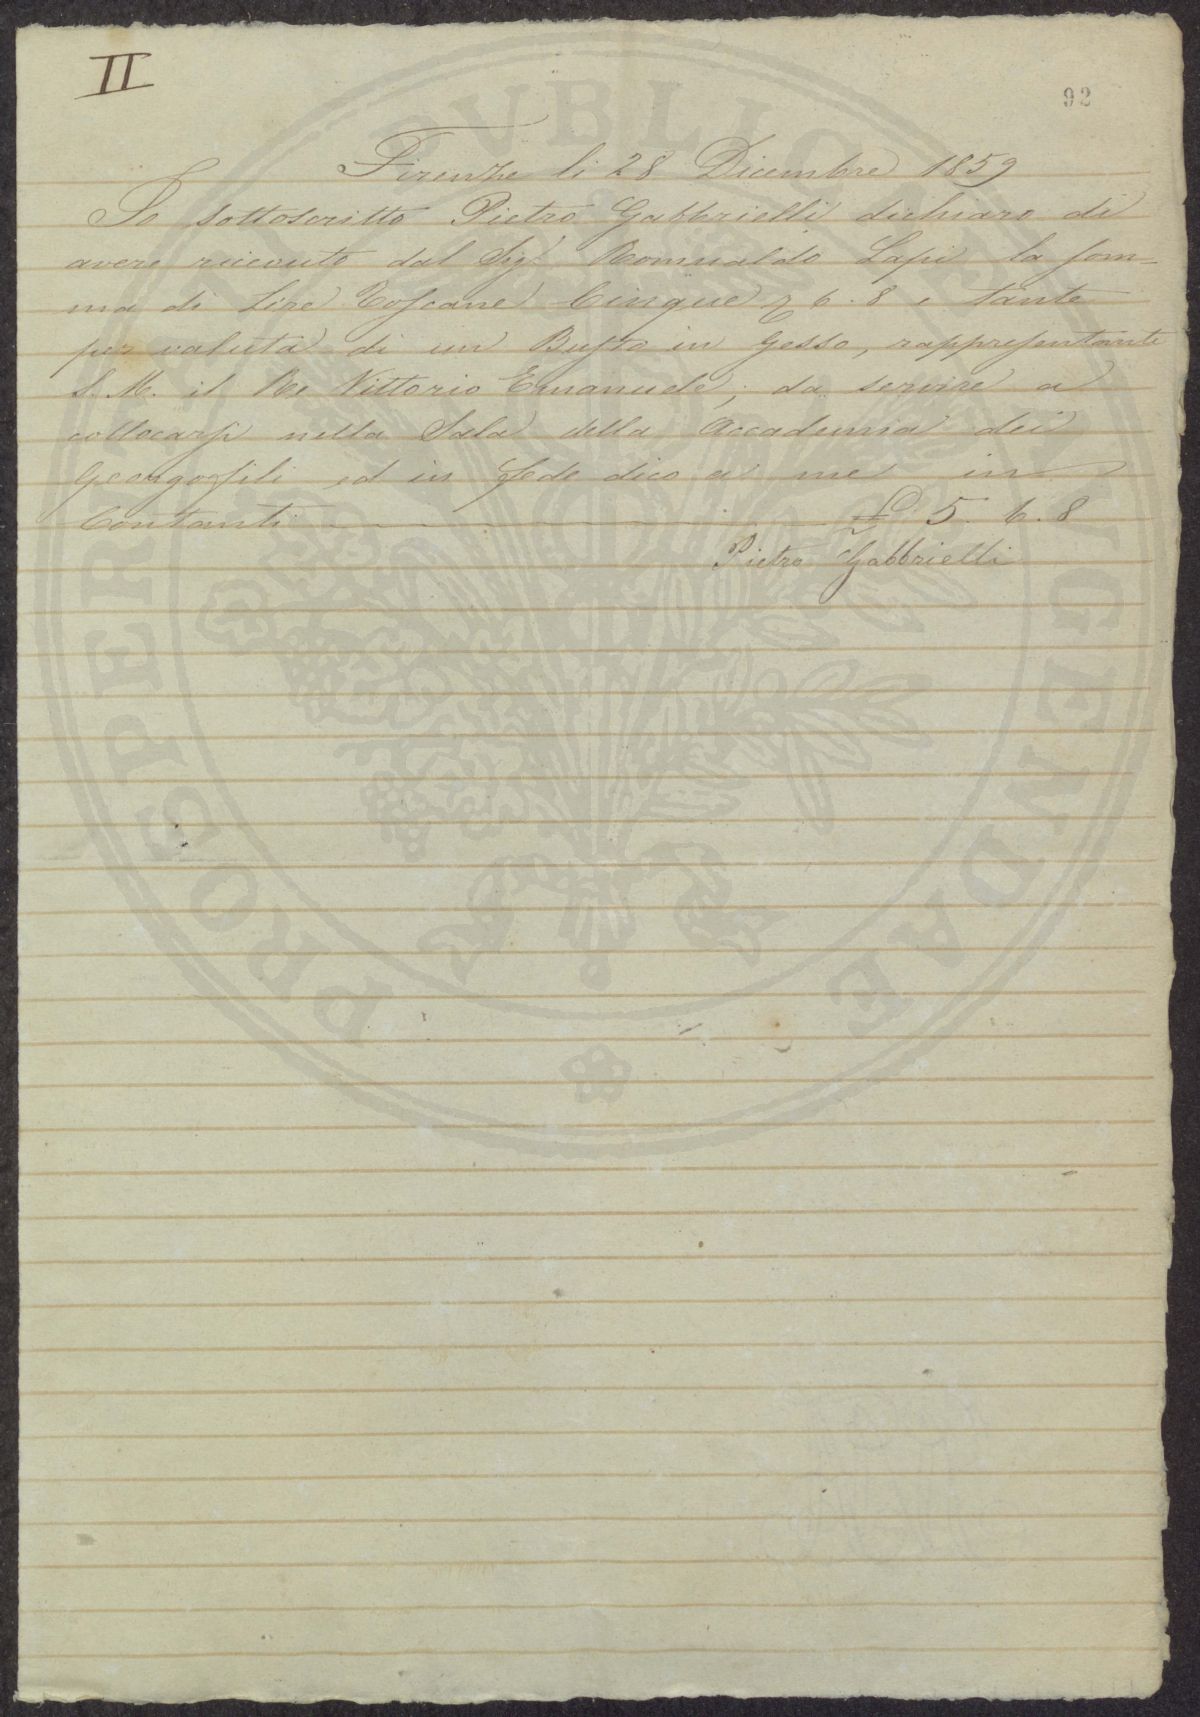 II
92
Firenze li 28 Dicembre 1859
Io sottoscritto Pietro Gabbrielli dichiaro di
avere ricevuto dal Sig.r Romualdo Lapi la som-
ma di Lire Toscane Cinque 6.8 e tante
per valuta di un Busto in Gesso, rappresentante
S. M. il Re Vittorio Emanuele, da servire a
collocarsi nella Sala della Accademia dei
Georgofili ed in fede dico a me in
Contanti £ 5. 6. 8
Pietro Gabbrielli
PROSPERITATI PVBLICAE AVGENDAE